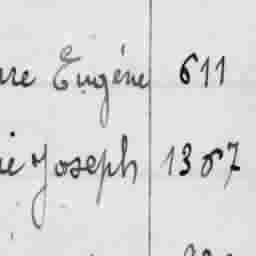 rre Eugène 611
ie Joseph 1367